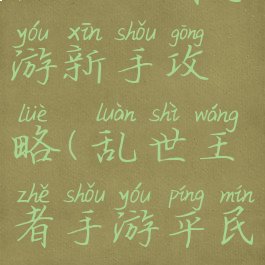 yóu xīn shǒu gōng
游新手攻
lüè luàn shì wáng
略(乱世王
zhě shǒu yóu píng mín
者手游平民